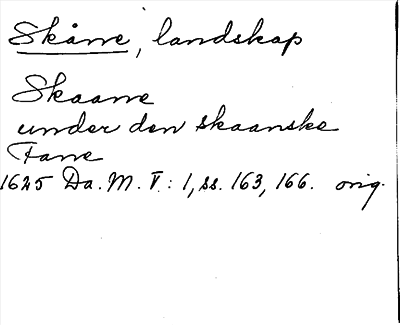 Skåne, landskap
Skaane
under den skaanske
Fane
1625 Da. M. V.: 1, ss. 163, 166. orig.